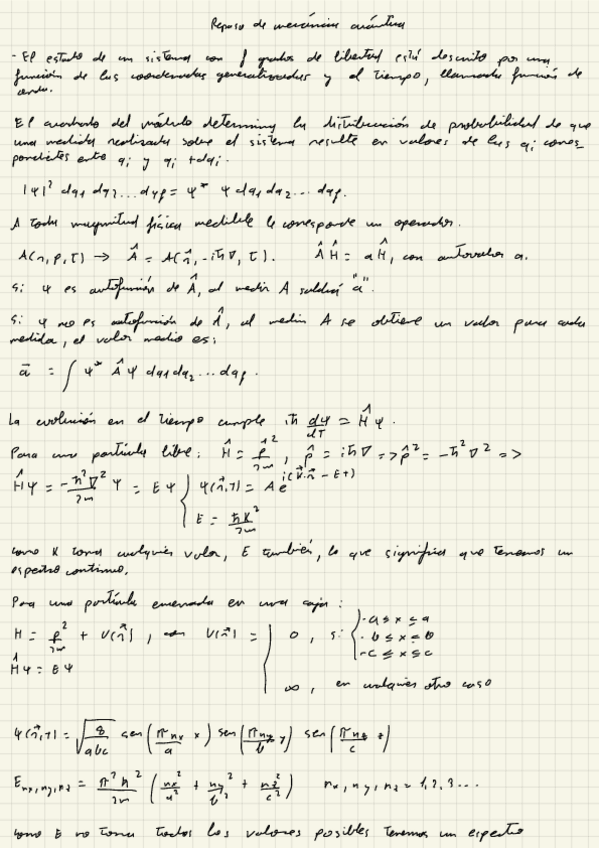 Repaso de mecánica cuántica
- El estado de un sistema con f grados de libertad está descrito por una
función de las coordenadas generalizadas y el tiempo, llamada función de
onda.
El cuadrado del módulo determina la distribución de probabilidad de que
una medida realizada sobre el sistema resulte en valores de las qi corres_
pondientes entre qi y qi + dqi.
|Ψ|² dq1 dq2... dqf = Ψ* Ψ dq1 dq2... dqf.
A toda magnitud física medible le corresponde un operador.
A(r, p, t) → Â = A(r⃗, -iħ∇, t). ÂĤ = aĤ, con autovalor a.
Si Ψ es autofunción de Â, al medir A saldrá "a".
Si Ψ no es autofunción de Â, al medir A se obtiene un valor para cada
medida, el valor medio es:
a̅ = ∫ Ψ* Â Ψ dq1 dq2... dqf.
La evolución en el tiempo cumple iħ dΨ/dT = ĤΨ.
Para una partícula libre: Ĥ = p̂²/2m, p̂ = iħ∇ => p̂² = -ħ²∇² =>
ĤΨ = -ħ²∇²/2m Ψ = EΨ { Ψ(r⃗,t) = A e^i(k⃗·r⃗ - Et)
E = ħk²/2m
Como K toma cualquier valor, E también, lo que significa que tenemos un
espectro continuo.
Para una partícula encerrada en una caja:
H = p²/2m + V(r⃗), con V(r⃗) = { 0, si { -a ≤ x ≤ a
-b ≤ x ≤ b
-c ≤ x ≤ c
ĤΨ = EΨ
∞, en cualquier otro caso
Ψ(r⃗,t) = √(8/abc) sen(πnx/a x) sen(πny/b y) sen(πnz/c z)
Enx,ny,nz = π²ħ²/2m (nx²/a² + ny²/b² + nz²/c²) nx, ny, nz = 1, 2, 3...
Como E no toma todos los valores posibles tenemos un espectro